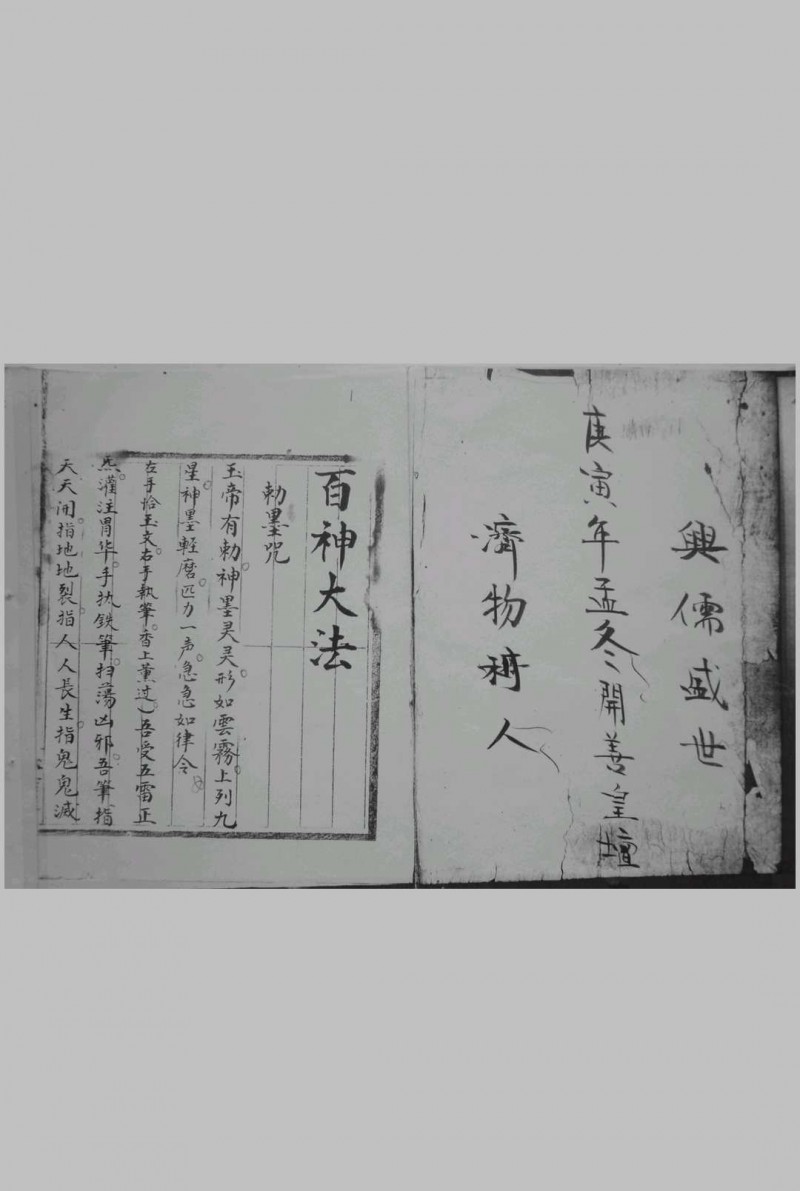 興儒盛世
庚寅年孟冬開善皇壇
濟物 人
百神大法
勅墨咒
玉帝有勅。神墨灵灵。形如雲霧。上列九
星。神墨軽磨。匹力一声。急急如律令。
左手恰玉文。右手執筆。香上薰过）吾受五雷正
炁。灌注胃华。手执鉄筆。扫蕩凶邪。吾筆指
天天開。指地地裂。指人人長生。指鬼鬼滅